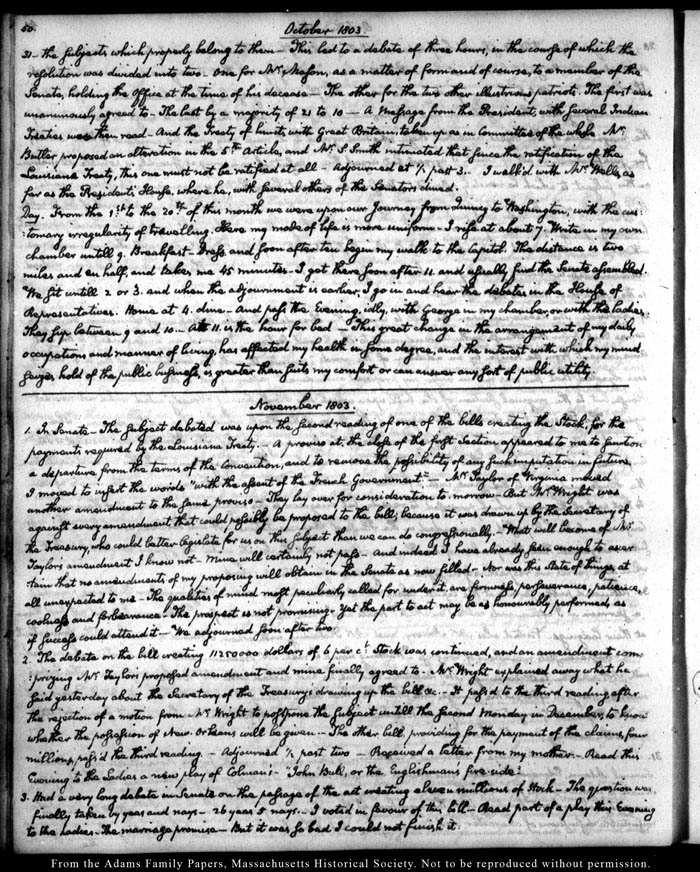 50.
October 1803.
31 - the subjects which properly belong to them - This led to a debate of three hours, in the course of which the
resolution was divided into two. One for Mr. Mason, as a matter of form and of course, to a member of the
Senate, holding the office at the time of his decease - The other for the two other illustrious patriots. The first was
unanimously agreed to - The last by a majority of 21 to 10 - A Message from the President, with several Indian
Treaties was then read - And the Treaty of limits with Great Britain, taken up as in Committee of the whole Mr.
Butler proposed an alteration in the 5th Article, and Mr. S. Smith intimated that since the ratification of the
Louisiana Treaty, this one must not be ratified at all - Adjourned at ½ past 3. - I walk'd with Mr. Wells, as
far as the President's House, where he, with several others of the Senators dined.
Day. From the 1st to the 20th of this month we were upon our Journey from Quincy to Washington, with the cus-
:tomary irregularity of travelling. Here my mode of life is more uniform - I rise at about 7. Write in my own
chamber untill 9. Breakfast - Dress and soon after ten begin my walk to the Capitol. The distance is two
miles and an half, and takes me 45 minutes - I get there soon after 11. and usually find the Senate assembled.
We sit untill 2 or 3. and when the adjournment is earlier, I go in and hear the debates in the House of
Representatives. Home at 4. dine - And pass the Evening idly, with George in my chamber, or with the ladies.
They sup between 9 and 10 - At 11. is the hour for bed - This great change in the arrangement of my daily
occupations and manner of living, has affected my health in some degree, and the interest with which my mind
seizes hold of the public business, is greater than suits my comfort or can answer any sort of public utility.
November 1803.
1. In Senate - The subject debated was upon the second reading of one of the bills creating the Stock, for the
payments required by the Louisiana Treaty. - A proviso at the close of the first Section appeared to me to sanction
a departure from the terms of the Convention, and to remove the possibility of any such imputation in future,
I moved to insert the words "with the assent of the French Government" - Mr. Taylor of Virginia moved
another amendment to the same proviso - They lay over for consideration to-morrow - But Mr. Wright was
against every amendment that could possibly be proposed to the bill; because it was drawn up by the Secretary of
the Treasury, who could better legislate for us on this subject than we can do congressionally. - What will become of Mr.
Taylors amendment I know not - Mine will certainly not pass - and indeed I have already seen enough to ascer
tain that no amendments of my proposing will obtain in the Senate as now filled - Nor was this state of things, at
all unexpected to me - The qualities of mind most peculiarly called for under it, are firmness, perseverance, patience,
coolness and forbearance - The prospect is not promising. Yet the part to act may be as honourably performed, as
if success could attend it - We adjourned soon after two.
2. The debate on the bill creating 11250000 dollars of 6 per ct. Stock was continued, and an amendment com
:prizing Mr. Taylors proposed amendment and mine finally agreed to - Mr. Wright explained away what he
said yesterday about the Secretary of the Treasurys drawing up the bill &c. - It pass'd to the third reading after
the rejection of a motion from Mr. Wright to postpone the subject untill the second Monday in December, to know
whether the possession of New-Orleans will be given - The other bill, providing for the payment of the claims, four
millions, pass'd the third reading - Adjourned ½ past two - Received a letter from my mother - Read this
Evening to the Ladies a new play of Colman's - "John Bull, or the Englishmans fire-side."
3. Had a very long debate in Senate on the passage of the act creating eleven millions of stock - The question was
finally taken by yeas and nays - 26 yeas 5 nays. - I voted in favour of this bill - Read part of a play this Evening
to the Ladies - The marriage promise - But it was so bad I could not finish it.
From the Adams Family Papers, Massachusetts Historical Society. Not to be reproduced without permission.